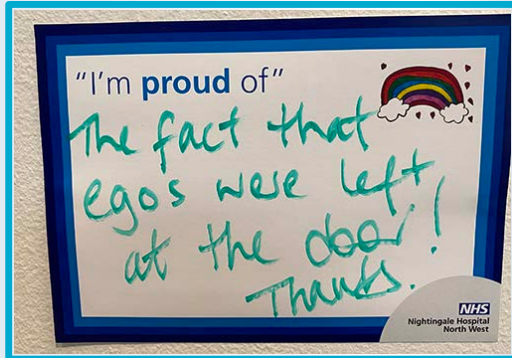 "I'm proud of"
The fact that
egos were left
at the door!
Thanks.
NHS
Nightingale Hospital
North West